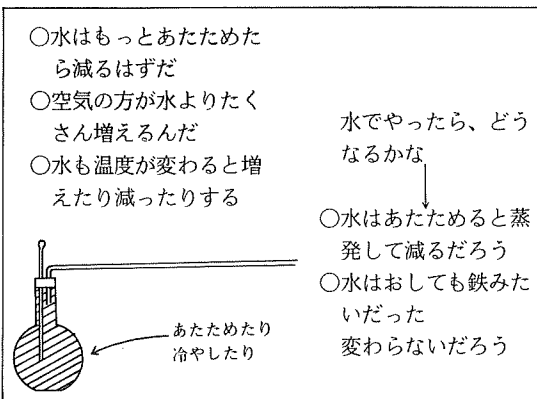 ○水はもっとあたためた
ら減るはずだ
○空気の方が水よりたく
さん増えるんだ
○水も温度が変わると増
えたり減ったりする
水でやったら、どう
なるかな
○水はあたためると蒸
発して減るだろう
○水はおしても鉄みた
いだった
変わらないだろう
あたためたり
冷やしたり